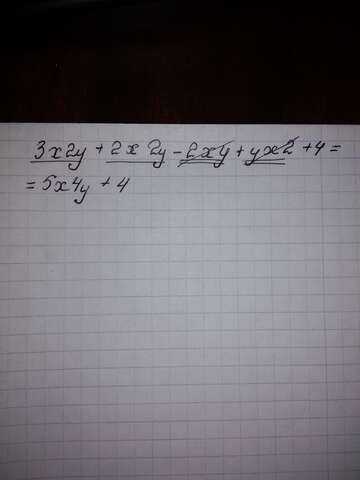 3x2y + 2x 2y - 2xy + yx2 + 4 =
= 5x4y + 4